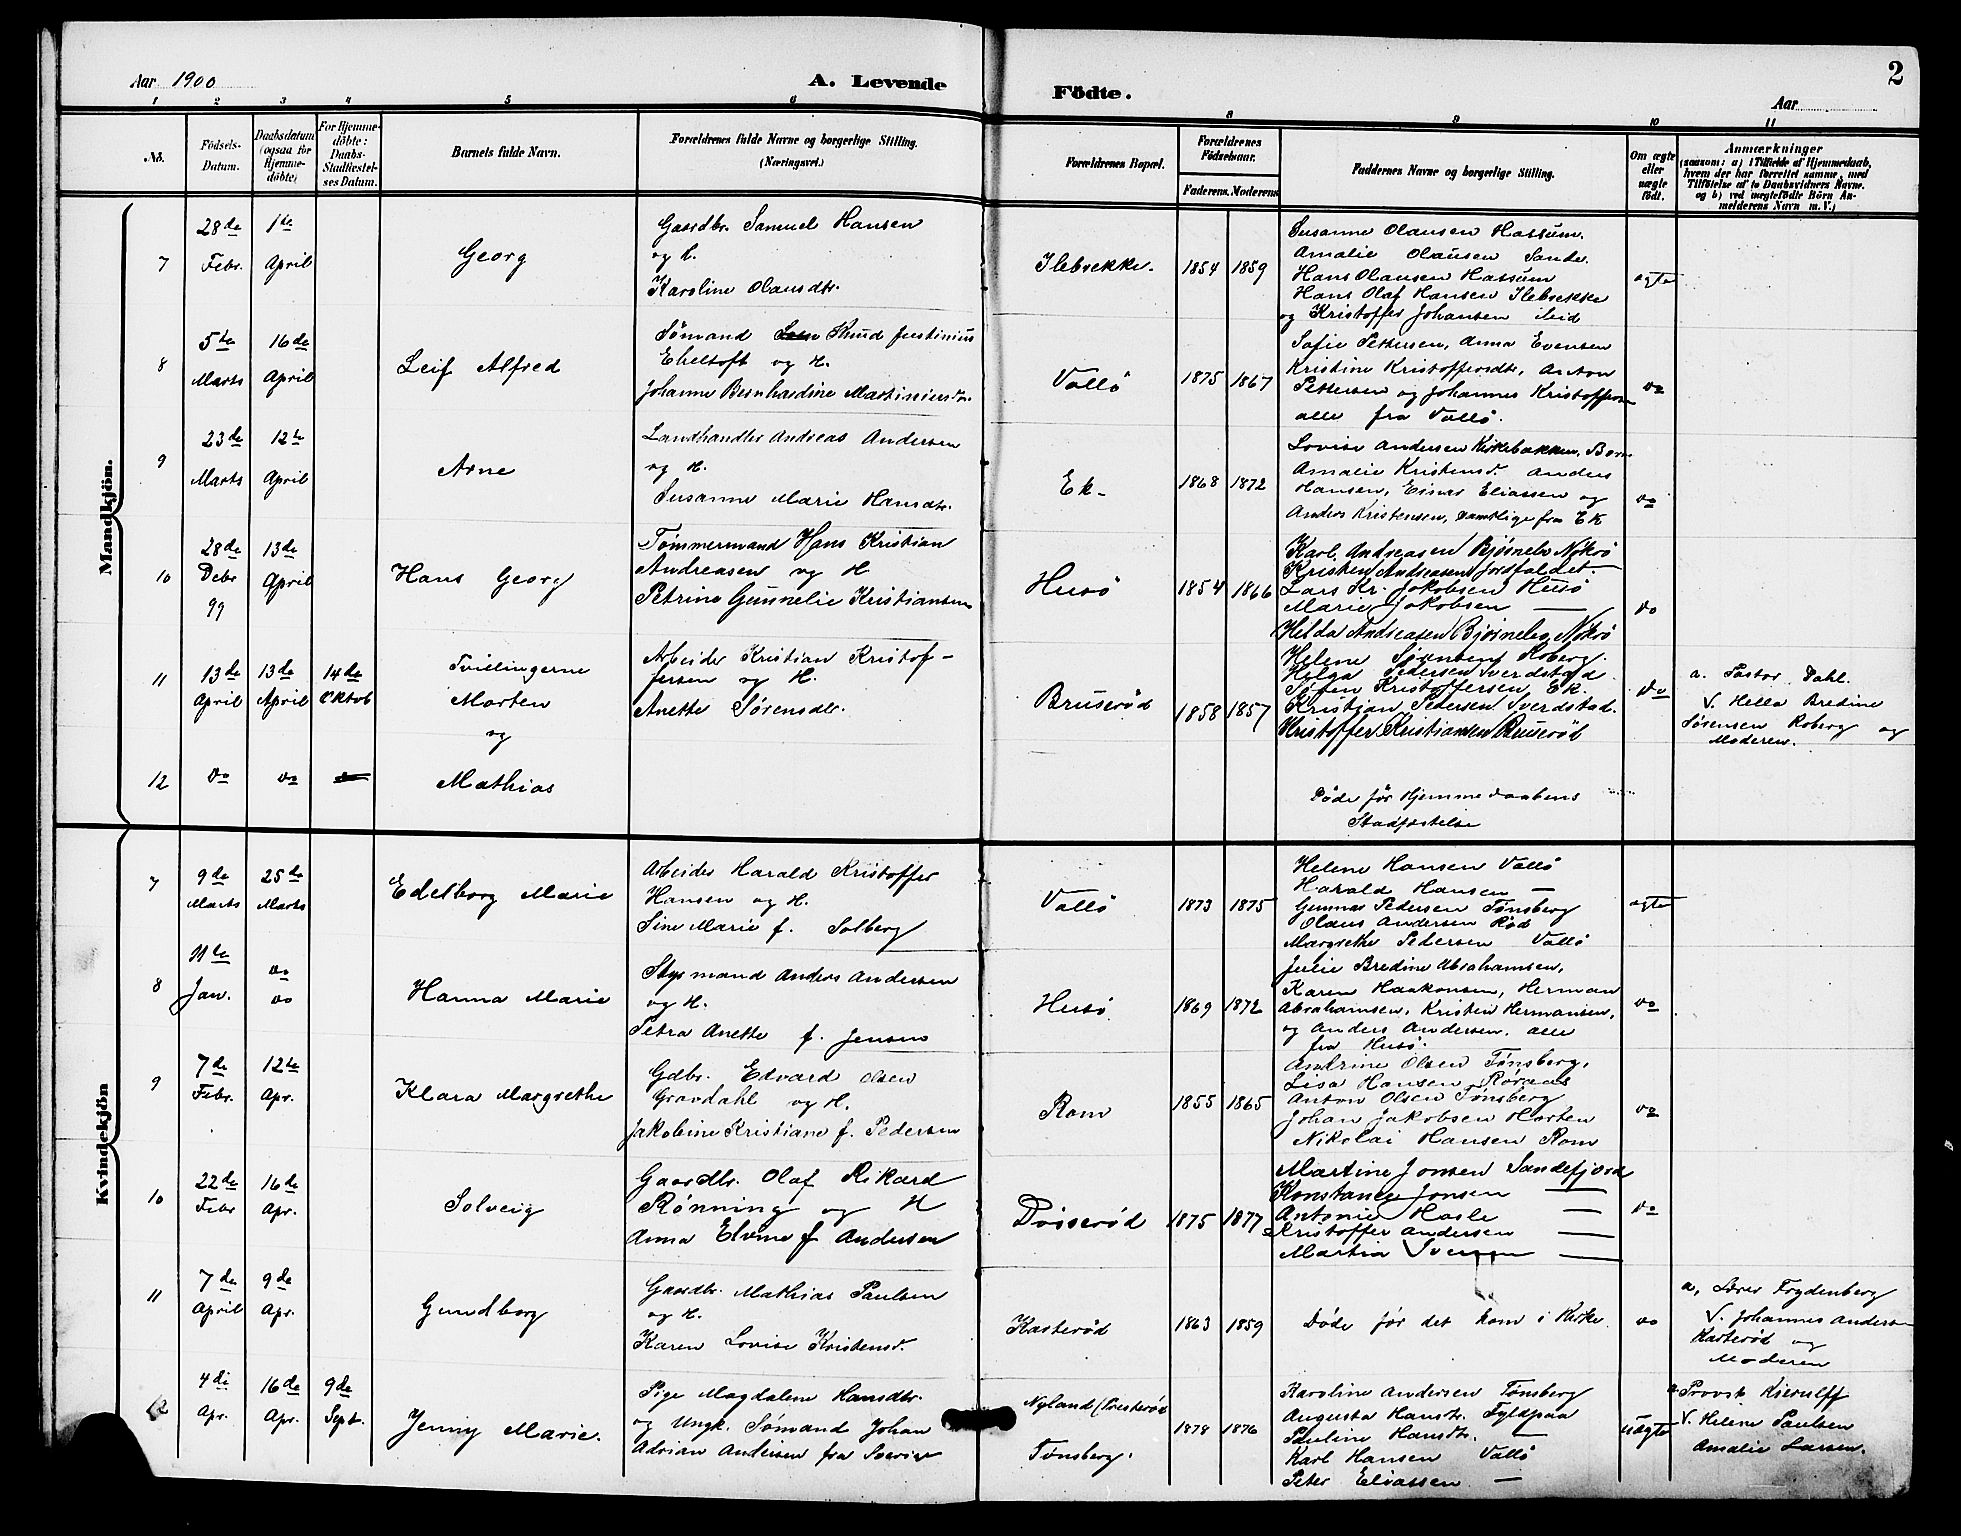 Aar 1900
A. Levende
Födte.
Aar
2
1 2 3 4 5 6 8 9 10 11
No.
Födsels-
Datum.
Daabsdatum
(ogsaa for
Hjemme-
döbte)
For Hjemme-
döbte:
Daabs-
Stadfæstel-
ses Datum.
Barnets fulde Navn.
Forældrenes fulde Navne og borgerlige Stilling.
(Næringsvei.)
Forældrenes Bopæl.
Forældrenes
Födselsaar.
Faderens. Moderens
Faddernes Navne og borgerlige Stilling.
Om ægte
eller
uægte
födt.
Anmærkninger
(saasom: a) i Tilfælde af Hjemmedaab,
hvem der har forrettet samme, med
Tilföielse af to Daabsvidners Navne.
og b) ved uægtefödte Börn An-
melderens Navn m. V.)
Mandkjön.
7
28de
Febr.
1te
April
Georg
Gaardbr. Samuel Hansen
og h.
Karoline Olausdtr.
Ilebrekke.
1854 1859
Susanne Olausen Hassum.
Amalie Olausen Sande.
Hans Olausen Hassum
Hans Olaf Hansen Ilebrekke
og Kristoffer Johansen ibid
ægte
8
5te
Marts
16de
April
Leif Alfred
Sømand Knud Justinius
Eheltoft og H.
Johanne Bernhardine Martiniusdr.
Vallö
1875 1867
Sofie Pettersen, Anna Evensen
Kristine Kristoffersdtr, Anton
Pettersen og Johannes Kristoffersen
alle fra Vallö.
do
9
23de
Marts
12te
April
Arne
Landhandler Andreas Andersen
og H.
Susanne Marie Hansdtr.
Ek-
1868 1872
Lovise Andersen Kirkebakken, Borre
Amalie Kristensd. Anders
Hansen, Einar Eliassen og
Anders Kristensen, samtlige fra Ek
do
10
28de
Debr
99
13de
April
Hans Georg
Tømmermand Hans Kristian
Andreasen og H
Petrine Gunnelie Kristiansen
Husö
1854 1866
Karl Andreasen Bjørnebo Nøtrö
Kristen Andreasen Jordfaldet —
Lars Kr. Jakobsen Husö
Marie Jakobsen —
Helda Andreasen Bjørnebo Nøtrö
do
11
13de
April
13de
April
14de
Oktob
Tvillingerne
Morten
og
Arbeider Kristian Kristof-
fersen og H.
Anette Sørensdtr.
Bruserød
1858 1857
Helene Sørensen Roberg.
Helga Pedersen Sverdstad.
Søren Kristoffersen Ek.
Kristian Pedersen Sverdstad.
Kristoffer Kristiansen Bruserød
do
a. Pastor Dahl.
V. Hella Bredine
Sørensen Roberg og
Moderen.
12
do
do
Mathias
Døde før Hjemmedaabens
Stadfæstelse
Kvindekjön
7
9de
Marts
25de
Marts
Edelborg Marie
Arbeider Harald Kristoffer
Hansen og H.
Sine Marie f. Solberg
Vallö
1873 1875
Helene Hansen Vallö
Harald Hansen —
Gunnar Pedersen Tønsberg
Olaus Andersen Röd
Margrethe Pedersen Vallö
ægte
8
11te
Jan.
do
do
Hanna Marie
Styrmand Anders Andersen
og H.
Petra Anette f. Jensen
Husö
1869 1872
Julie Bredine Abrahamsen,
Karen Haakonsen, Herman
Abrahamsen, Kristen Hermansen,
og Anders Andersen, alle
fra Husö.
do
9
7de
Febr.
12te
Apr.
Klara Margrethe
Gdbr. Edvard Olsen
Gravdahl og H.
Jakobine Kristiane f. Pedersen
Rom
1855 1865
Andrine Olsen Tønsberg,
Lisa Hansen Röraas
Anton Olsen Tønsberg
Johan Jakobsen Horten
Nikolai Hansen Rom
do
10
22de
Febr
16de
Apr.
Solveig
Gaardbr. Olaf Rikard
Rønning og H
Anna Elvine f Andersen
Døsserød
1875 1877
Martine Jonsen Sandefjord
Konstance Jonsen —
Antonie Hasle —
Kristoffer Andersen —
Martin Iversen —
do
11
7de
April
9de
Apr.
Gundborg
Gaardbr. Mathias Paulsen
og H.
Karen Lovise Kristensd.
Kasterød
1863 1859
Døde før det kom i Kirke.
do
a, Lærer Frydenberg
V. Johannes Andersen
Kasterød og
Moderen
12
4de
Apr.
16de
Apr.
9de
Sept.
Jenny Marie.
Pige Magdalene Hansdtr.
og Ungk. Sømand Johan
Adrian Andersen fra Sverige
Nyland (Presterød
Tønsberg.
1878 1876
Karoline Andersen Tønsberg
Augusta Hansdtr. Fyldpaa
Pauline Hansdtr. —
Karl Hansen Vallö
Peter Eliassen —
uægte
a. Provst Kierulff
V. Helene Paulsen
Amalie Larsen.